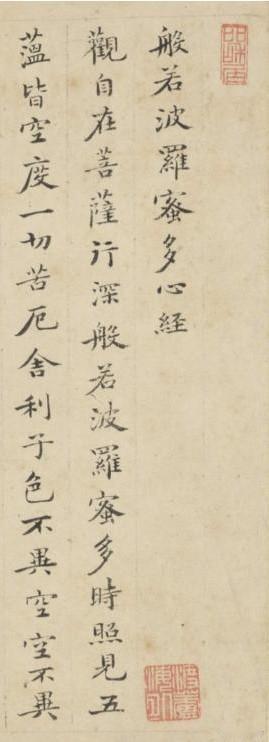 般若波羅蜜多心経
觀自在菩薩行深般若波羅蜜多時照見五
蘊皆空度一切苦厄舍利子色不異空空不異